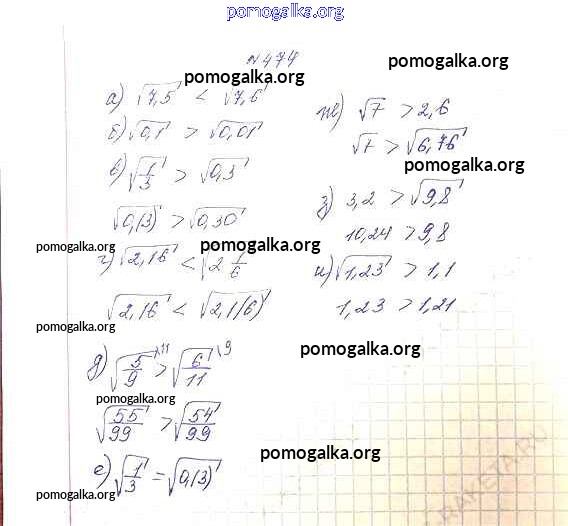 pomogalka.org
№474
pomogalka.org
pomogalka.org
а) √7,5 < √7,6
б) √0,1 > √0,01
в) √1/3 > √0,3
√0,(3) > √0,30
pomogalka.org
pomogalka.org
г) √2,16 < √2 1/6
√2,16 < √2,1(6)
pomogalka.org
д) √5/9 \11 > √6/11 \9
pomogalka.org
√55/99 > √54/99
е) √1/3 = √0,(3)
pomogalka.org
ж) √7 > 2,6
√7 > √6,76
pomogalka.org
з) 3,2 > √9,8
10,24 > 9,8
и) √1,23 > 1,1
1,23 > 1,21
pomogalka.org
pomogalka.org
RAKETA.RU